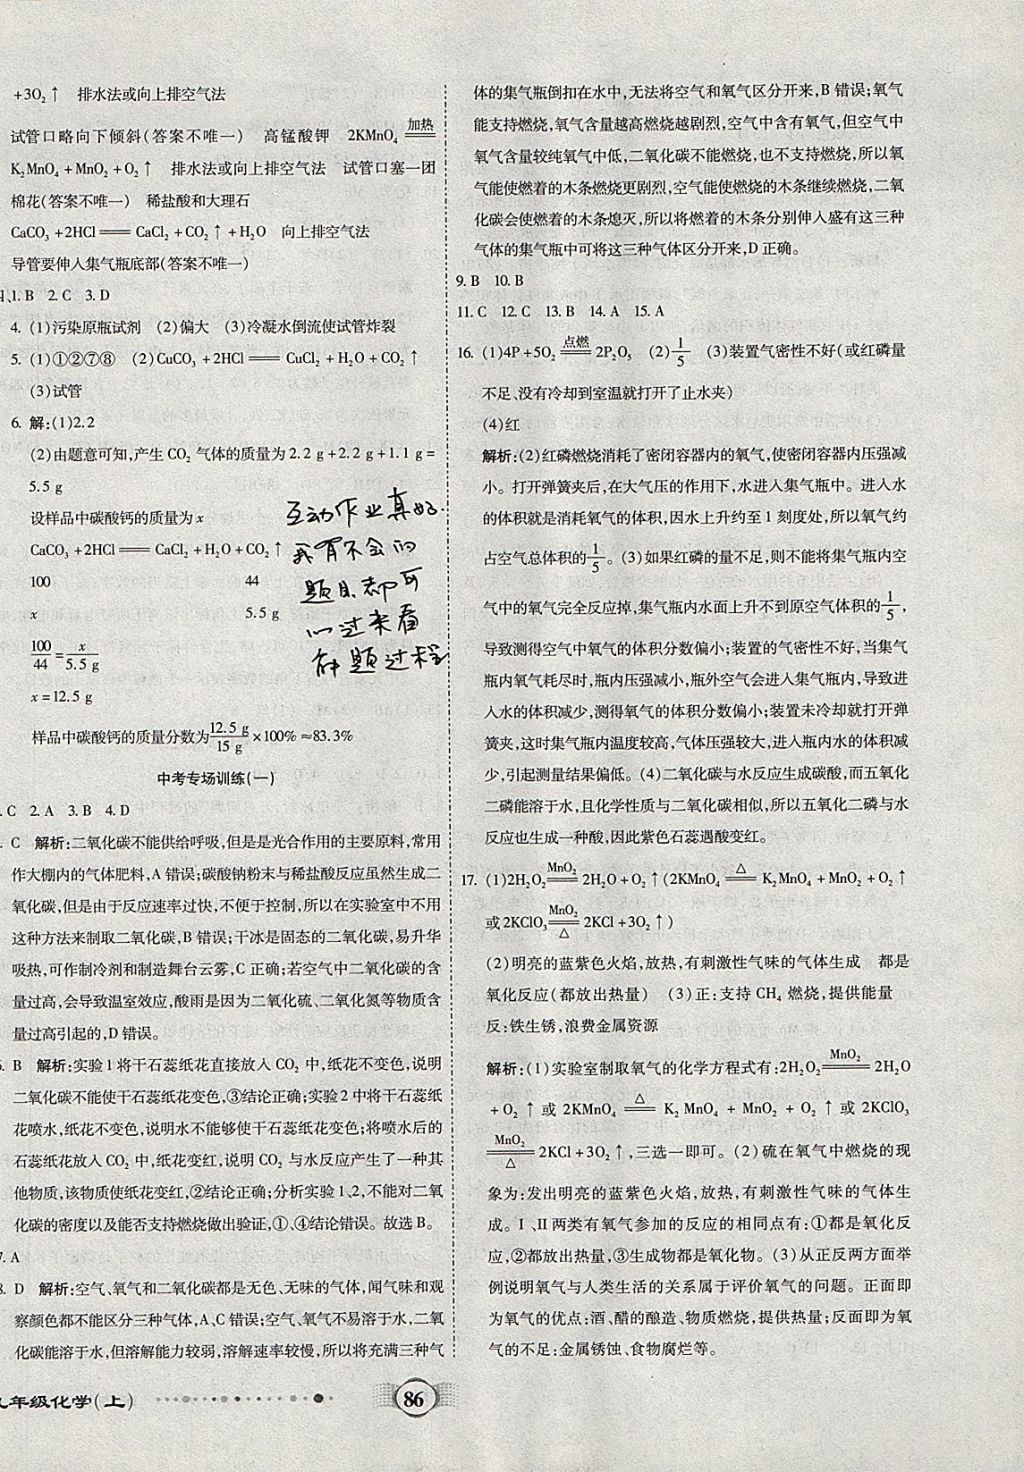 +3O₂↑ 排水法或向上排空气法
试管口略向下倾斜(答案不唯一) 高锰酸钾 2KMnO₄ ≜(加热)
K₂MnO₄+MnO₂+O₂↑ 排水法或向上排空气法 试管口塞一团
棉花(答案不唯一) 稀盐酸和大理石
CaCO₃+2HCl══CaCl₂+CO₂↑+H₂O 向上排空气法
导管要伸入集气瓶底部(答案不唯一)
1.B 2.C 3.D
4. (1)污染原瓶试剂 (2)偏大 (3)冷凝水倒流使试管炸裂
5. (1)①②⑦⑧ (2)CuCO₃+2HCl══CuCl₂+H₂O+CO₂↑
(3)试管
6. 解:(1)2.2
(2)由题意可知,产生 CO₂ 气体的质量为 2.2 g+2.2 g+1.1 g=
5.5 g
设样品中碳酸钙的质量为 x
CaCO₃+2HCl══CaCl₂+H₂O+CO₂↑
100 44
x 5.5 g
100/44=x/5.5 g
x=12.5 g
样品中碳酸钙的质量分数为12.5 g/15 g×100%≈83.3%
互动作业真好.
我有不会的
题目都可
以过来看
解题过程
中考专场训练(一)
C 2.A 3.B 4.D
C 解析:二氧化碳不能供给呼吸,但是是光合作用的主要原料,常用
作大棚内的气体肥料,A 错误;碳酸钠粉末与稀盐酸反应虽然生成二
氧化碳,但是由于反应速率过快,不便于控制,所以在实验室中不用
这种方法来制取二氧化碳,B 错误;干冰是固态的二氧化碳,易升华
吸热,可作制冷剂和制造舞台云雾,C 正确;若空气中二氧化碳的含
量过高,会导致温室效应,酸雨是因为二氧化硫、二氧化氮等物质含
量过高引起的,D 错误。
B 解析:实验 1 将干石蕊纸花直接放入 CO₂ 中,纸花不变色,说明
二氧化碳不能使干石蕊纸花变色,③结论正确;实验 2 中将干石蕊纸
花喷水,纸花不变色,说明水不能够使干石蕊纸花变色;将喷水后的
石蕊纸花放入 CO₂ 中,纸花变红,说明 CO₂ 与水反应产生了一种其
他物质,该物质使纸花变红,②结论正确;分析实验 1、2,不能对二氧
化碳的密度以及能否支持燃烧做出验证,①、④结论错误。故选 B。
7. A
8. D 解析:空气、氧气和二氧化碳都是无色、无味的气体,闻气味和观
察颜色都不能区分三种气体,A、C 错误;空气、氧气不易溶于水,二氧
化碳能溶于水,但溶解能力较弱,溶解速率较慢,所以将充满三种气
体的集气瓶倒扣在水中,无法将空气和氧气区分开来,B 错误;氧气
能支持燃烧,氧气含量越高燃烧越剧烈,空气中含有氧气,但空气中
氧气含量较纯氧气中低,二氧化碳不能燃烧,也不支持燃烧,所以氧
气能使燃着的木条燃烧更剧烈,空气能使燃着的木条继续燃烧,二氧
化碳会使燃着的木条熄灭,所以将燃着的木条分别伸入盛有这三种
气体的集气瓶中可将这三种气体区分开来,D 正确。
9. B 10. B
11. C 12. C 13. B 14. A 15. A
16. (1)4P+5O₂ ══(点燃) 2P₂O₅ (2)1/5 (3)装置气密性不好(或红磷量
不足、没有冷却到室温就打开了止水夹)
(4)红
解析:(2)红磷燃烧消耗了密闭容器内的氧气,使密闭容器内压强减
小。打开弹簧夹后,在大气压的作用下,水进入集气瓶中。进入水
的体积就是消耗氧气的体积,因水上升约至 1 刻度处,所以氧气约
占空气总体积的1/5。(3)如果红磷的量不足,则不能将集气瓶内空
气中的氧气完全反应掉,集气瓶内水面上升不到原空气体积的1/5,
导致测得空气中氧气的体积分数偏小;装置的气密性不好,当集气
瓶内氧气耗尽时,瓶内压强减小,瓶外空气会进入集气瓶内,导致进
入水的体积减少,测得氧气的体积分数偏小;装置未冷却就打开弹
簧夹,这时集气瓶内温度较高,气体压强较大,进入瓶内水的体积减
少,引起测量结果偏低。(4)二氧化碳与水反应生成碳酸,而五氧化
二磷能溶于水,且化学性质与二氧化碳相似,所以五氧化二磷与水
反应也生成一种酸,因此紫色石蕊遇酸变红。
17. (1)2H₂O₂ ══(MnO₂) 2H₂O+O₂↑(2KMnO₄ ══(△) K₂MnO₄+MnO₂+O₂↑
或 2KClO₃ ══(MnO₂/△) 2KCl+3O₂↑)
(2)明亮的蓝紫色火焰,放热,有刺激性气味的气体生成 都是
氧化反应(都放出热量) (3)正:支持 CH₄ 燃烧,提供能量
反:铁生锈,浪费金属资源
解析:(1)实验室制取氧气的化学方程式有:2H₂O₂ ══(MnO₂) 2H₂O
+O₂↑ 或 2KMnO₄ ══(△) K₂MnO₄+MnO₂+O₂↑ 或 2KClO₃
══(MnO₂/△) 2KCl+3O₂↑,三选一即可。(2)硫在氧气中燃烧的现
象为:发出明亮的蓝紫色火焰,放热,有刺激性气味的气体生
成。Ⅰ、Ⅱ两类有氧气参加的反应的相同点有:①都是氧化反
应,②都放出热量,③生成物都是氧化物。(3)从正反两方面举
例说明氧气与人类生活的关系属于评价氧气的问题。正面即
为氧气的优点:酒、醋的酿造、物质燃烧,提供热量;反面即为氧
气的不足:金属锈蚀、食物腐烂等。
九年级化学(上)
86